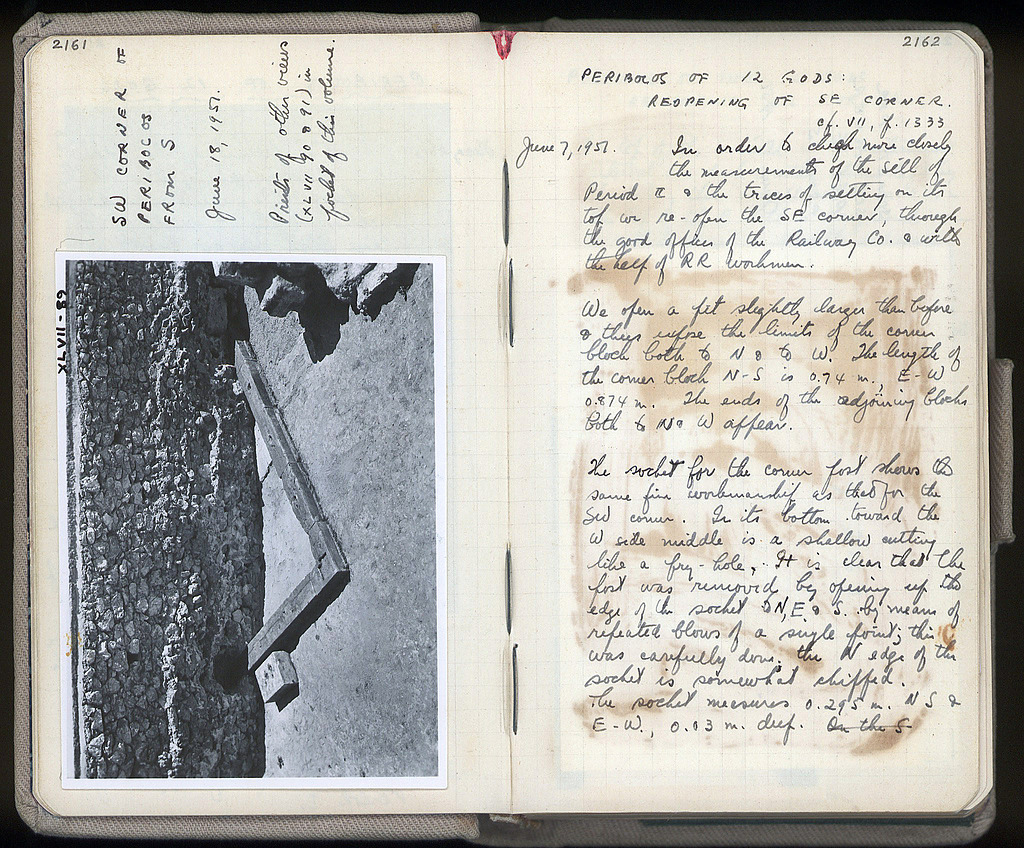 2161
SW CORNER OF
PERIBOLOS
FROM S
June 18, 1951.
Prints of other views
(XLVII 90 & 91) in
pocket of this volume.
XLVII-89
2162
PERIBOLOS OF 12 GODS:
REOPENING OF SE CORNER.
cf. VII, p. 1333
June 7, 1951. In order to check more closely
the measurements of the sill of
Period II & the traces of setting on its
top we re-open the SE corner, through
the good offices of the Railway Co. & with
the help of RR workmen.
We open a pit slightly larger than before
& thus expose the limits of the corner
block both to N & to W. The length of
the corner block N-S is 0.74 m., E-W
0.874 m. The ends of the adjoining blocks
both to N & W appear.
The socket for the corner post shows the
same fine workmanship as that for the
SW corner. In its bottom toward the
W side middle is a shallow cutting
like a pry-hole. It is clear that the
post was removed by opening up the
edge of the socket N, E & S. by means of
repeated blows of a single point; this
was carefully done. the N edge of the
socket is somewhat chipped.
The socket measures 0.295 m. NS &
E-W., 0.03 m. deep. On the S.